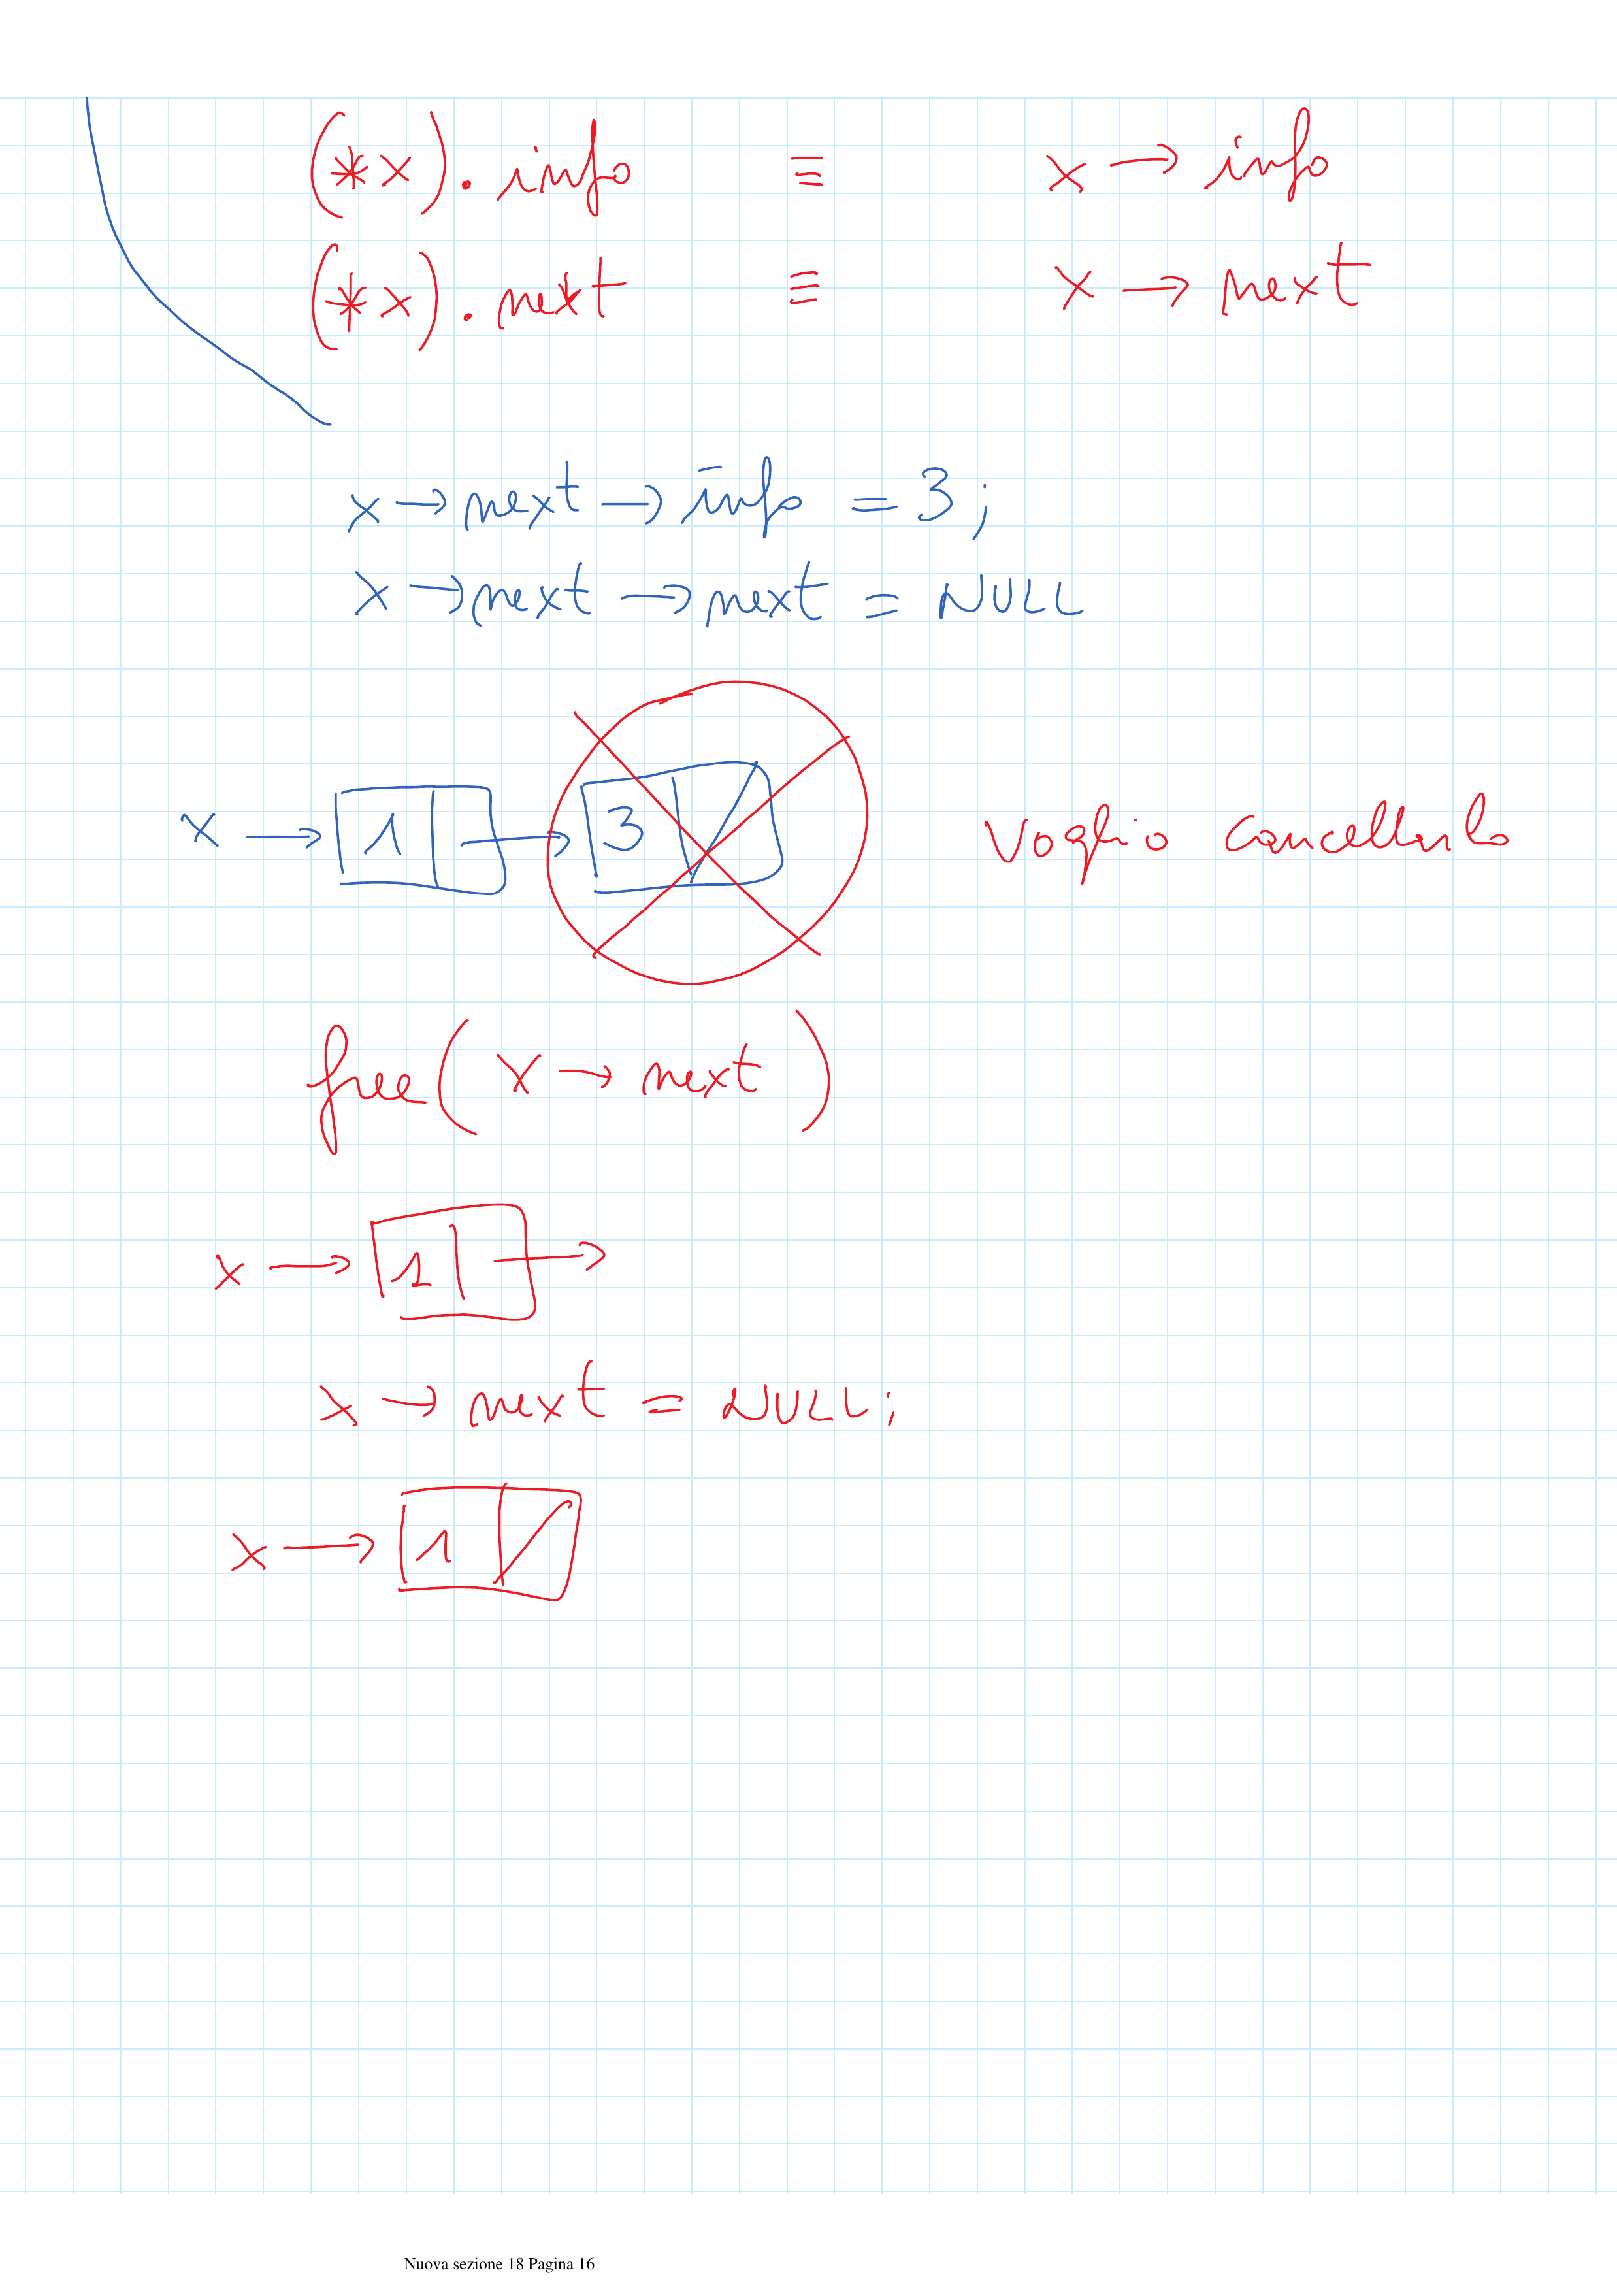 (*x).info ≡ x → info
(*x).next ≡ x → next
x → next → info = 3;
x → next → next = NULL
x → 1 → 3 Voglio cancellarlo
free(x → next)
x → 1 →
x → next = NULL;
x → 1
Nuova sezione 18 Pagina 16